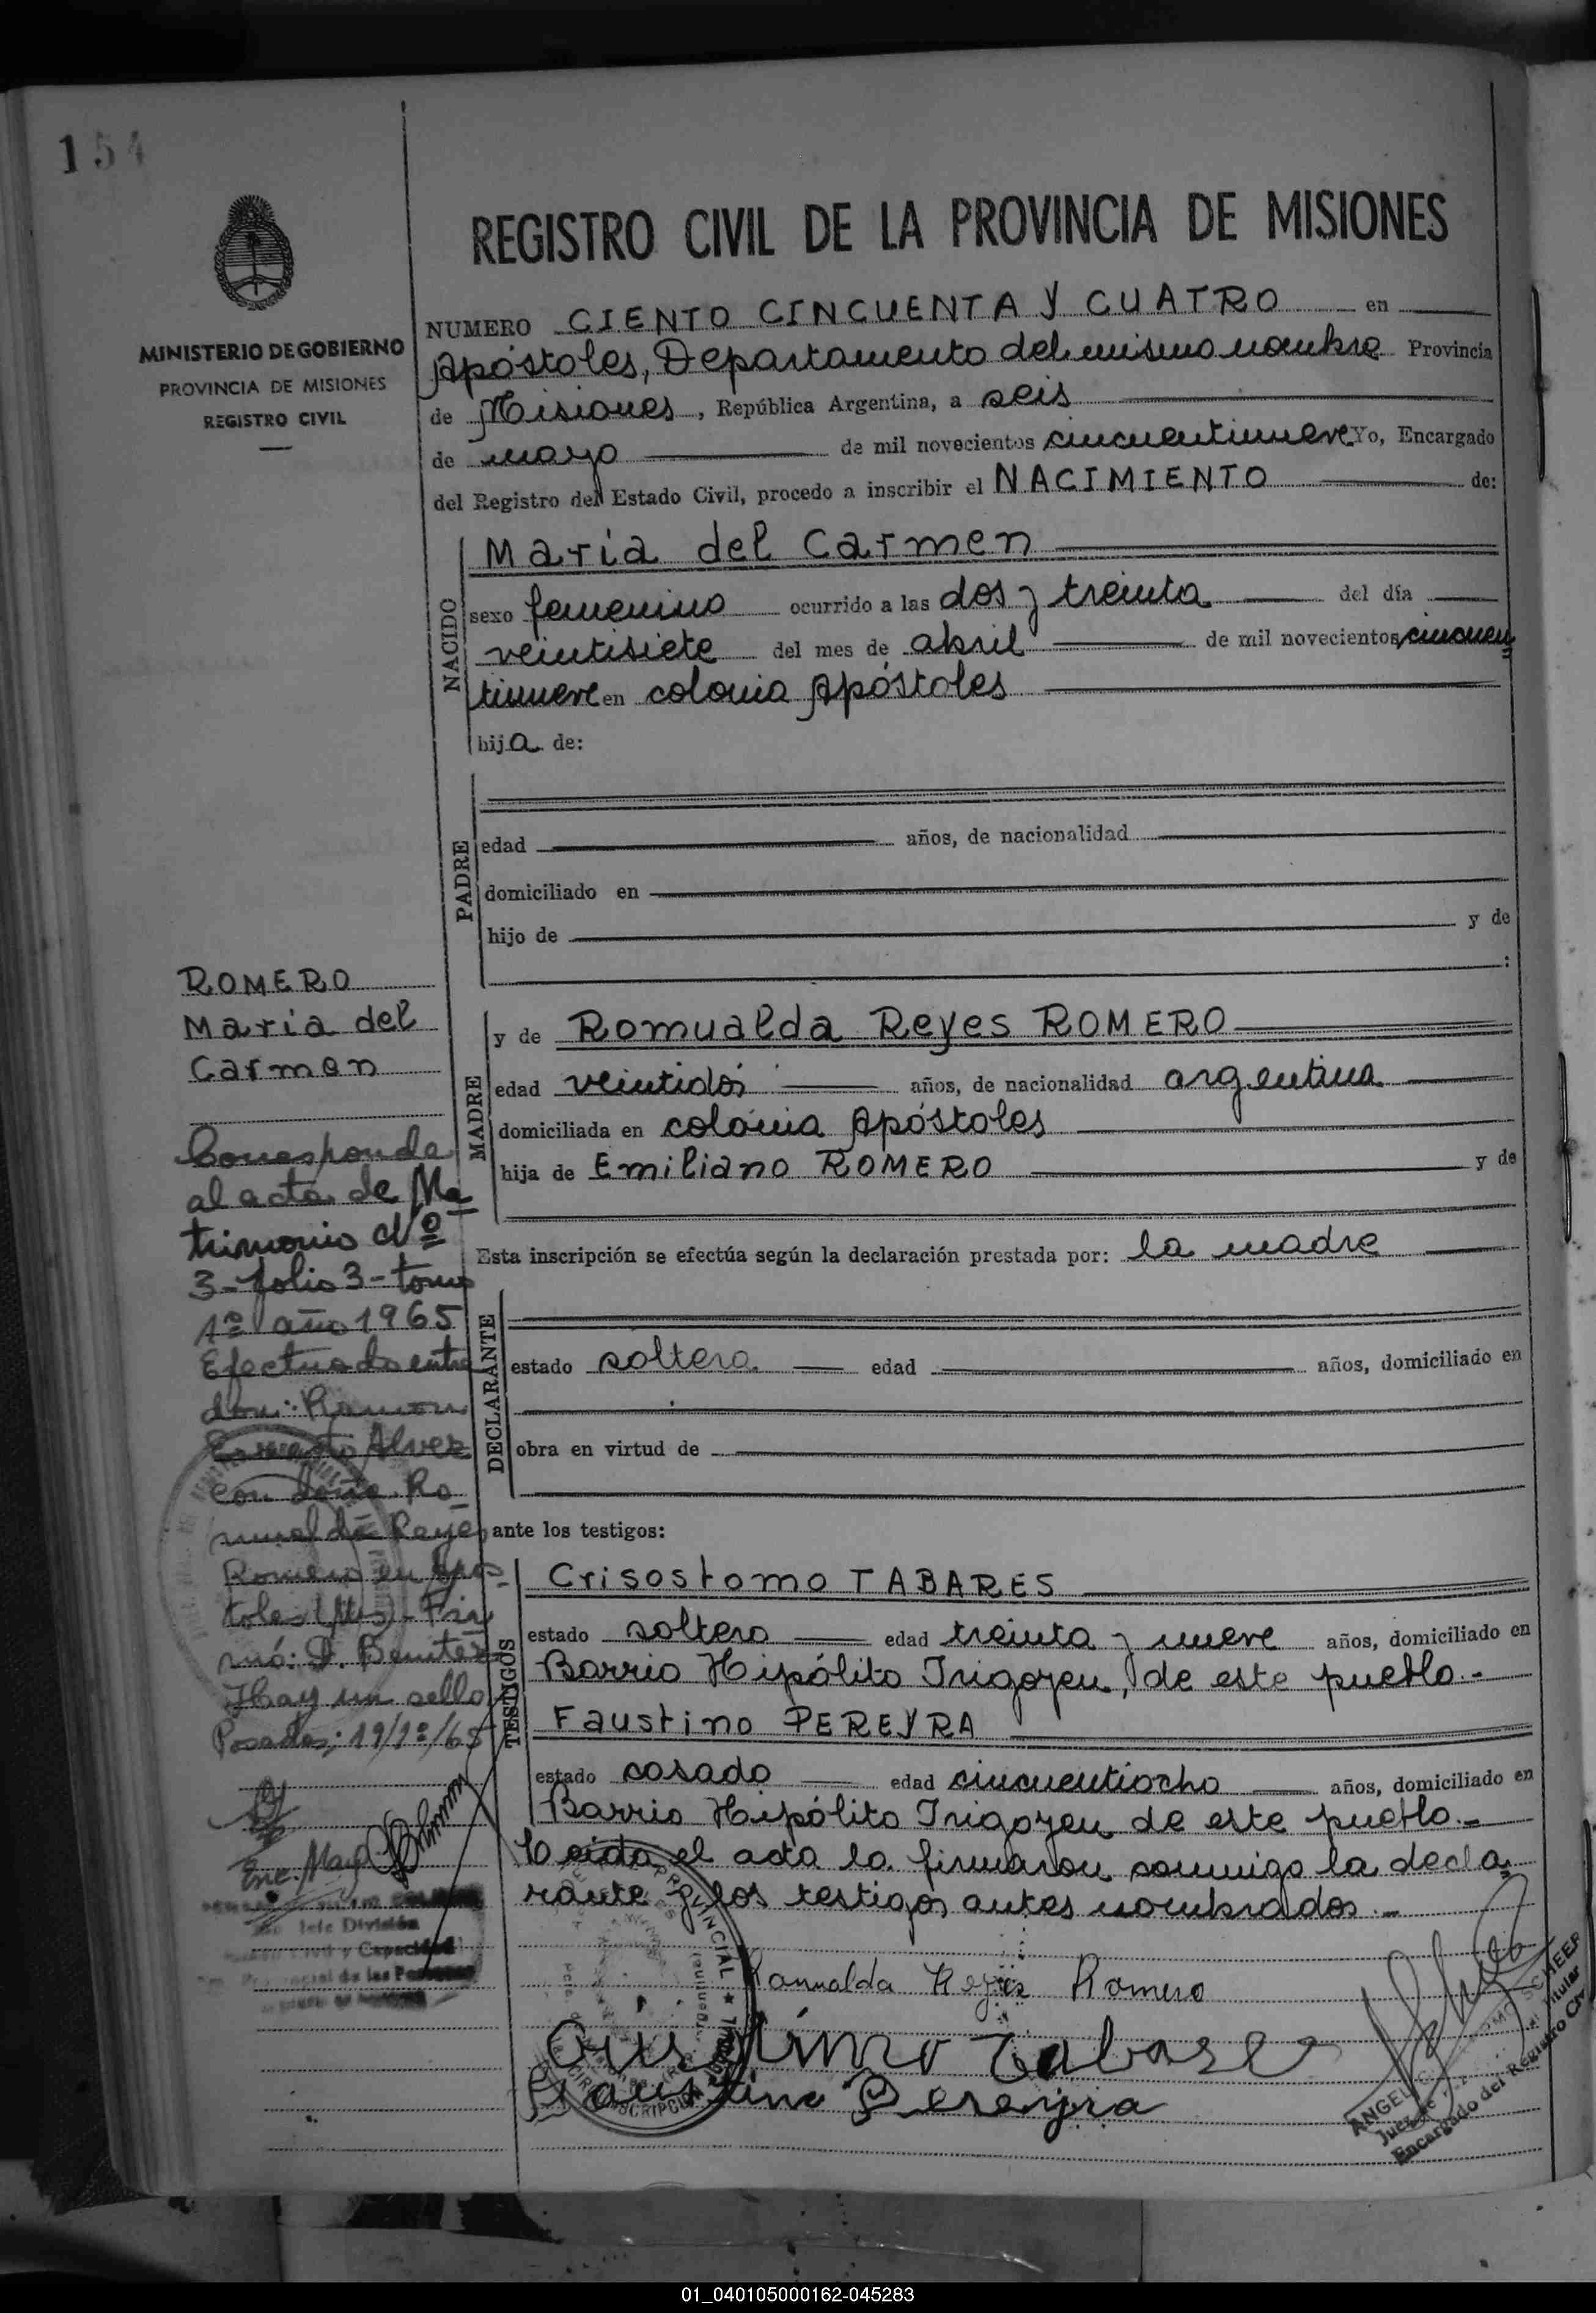 154
MINISTERIO DE GOBIERNO
PROVINCIA DE MISIONES
REGISTRO CIVIL
REGISTRO CIVIL DE LA PROVINCIA DE MISIONES
NUMERO CIENTO CINCUENTA Y CUATRO en
Apóstoles, Departamento del mismo nombre Provincia
de Misiones, República Argentina, a seis
de mayo de mil novecientos cincuentinueve Yo, Encargado
del Registro del Estado Civil, procedo a inscribir el NACIMIENTO de:
NACIDO
María del Carmen
sexo femenino ocurrido a las dos y treinta del día
veintisiete del mes de abril de mil novecientos cincuen
tinueve en colonia Apóstoles
hija de:
PADRE
edad años, de nacionalidad
domiciliado en
hijo de y de
:
MADRE
y de Romualda Reyes ROMERO
edad veintidós años, de nacionalidad argentina
domiciliada en colonia Apóstoles
hija de Emiliano ROMERO y de
Esta inscripción se efectúa según la declaración prestada por: la madre
DECLARANTE
estado soltera edad años, domiciliado en
obra en virtud de
ante los testigos:
TESTIGOS
Crisostomo TABARES
estado soltero edad treinta y nueve años, domiciliado en
Barrio Hipólito Irigoyen, de este pueblo.-
Faustino PEREYRA
estado casado edad cincuentiocho años, domiciliado en
Barrio Hipólito Irigoyen de este pueblo.-
Leida el acta la firmaron conmigo la decla
rante y los testigos antes nombrados.-
Romualda Reyes Romero
Tabares
Faustino Pereyra
Encargado del Registro Civ
ROMERO
María del
Carmen
Corresponde
al acta de Ma
trimonio Nº
3-folio 3-tomo
1º año 1965
Efectuado entre
don: Ramon
Ernesto Alvez
con doña Ro
mualda Reyes
Romero en Apos-
toles (Ms)- Fir
mó: D. Benitez
Hay un sello
Posadas; 19/1º/65
Enc. May
Jefe División
Civil y Capacidad
Provincial de las Personas
01_040105000162-045283